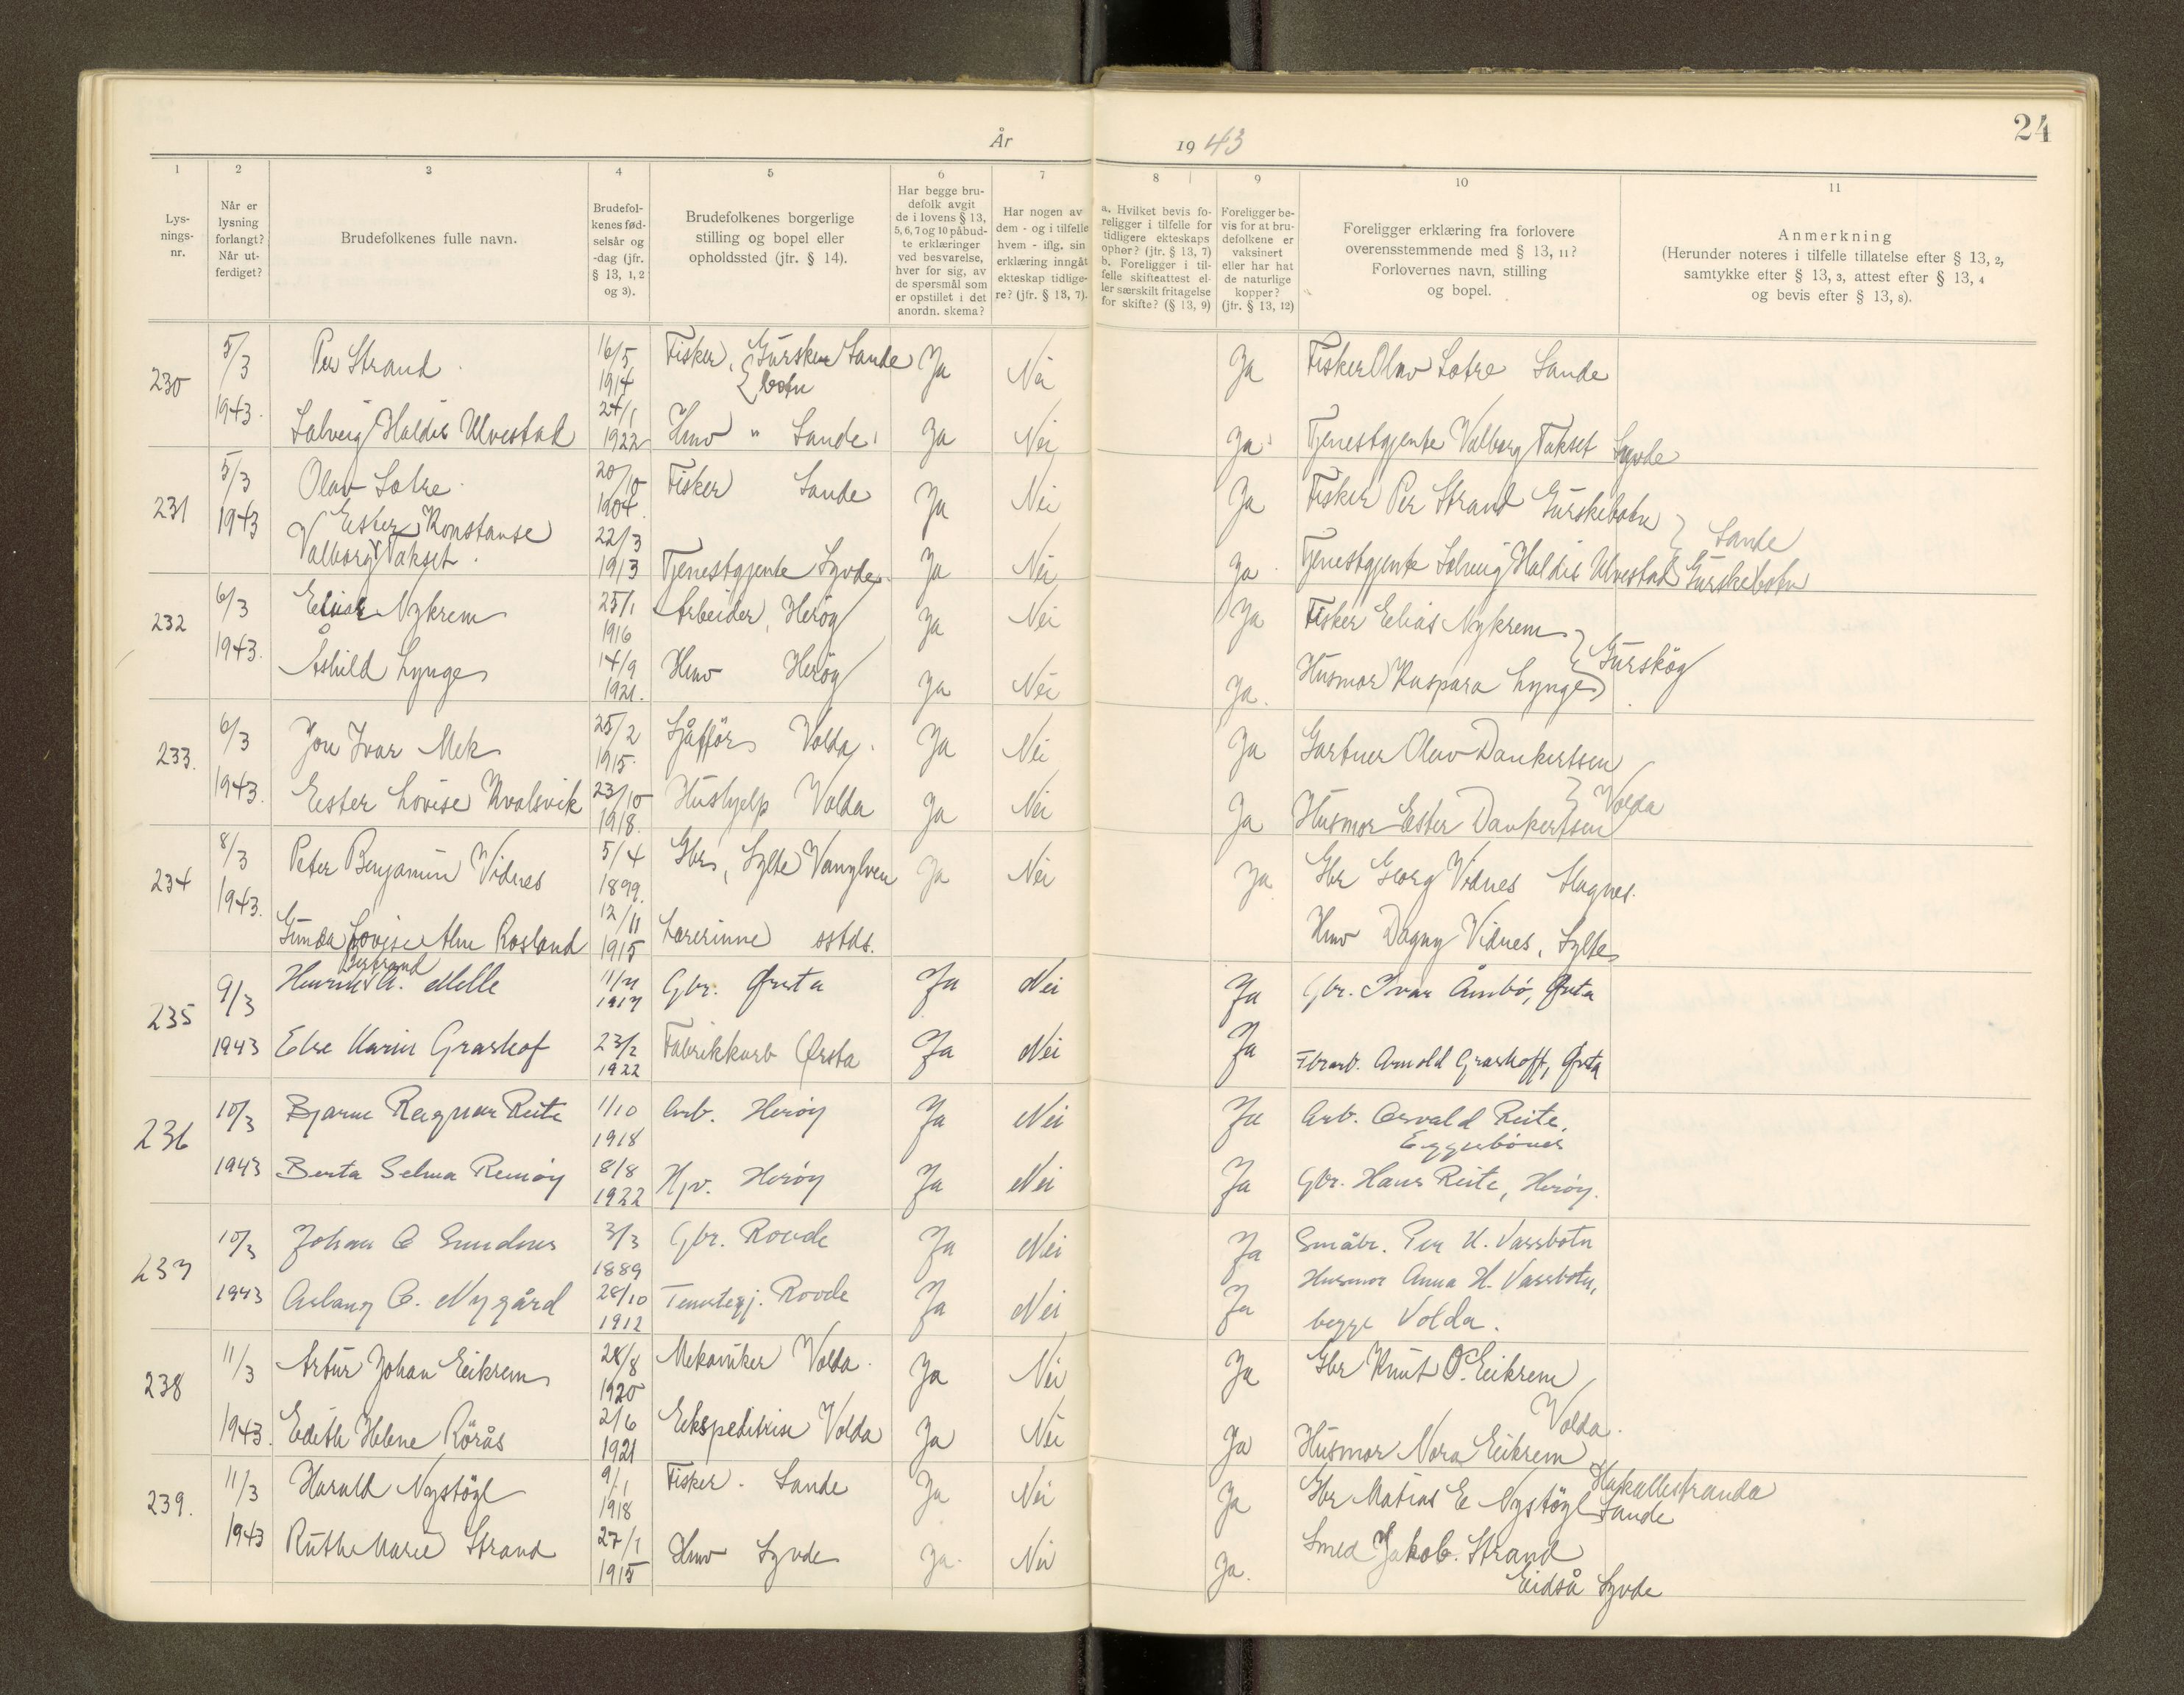 24
År 1943
1 2 3 4 5 6 7 8 9 10 11
Lys-
nings-
nr.
Når er
lysning
forlangt?
Når ut-
ferdiget?
Brudefolkenes fulle navn.
Brudefol-
kenes fød-
selsår og
-dag (jfr.
§ 13, 1, 2
og 3).
Brudefolkenes borgerlige
stilling og bopel eller
opholdssted (jfr. § 14).
Har begge bru-
defolk avgit
de i lovens § 13,
5, 6, 7 og 10 påbud-
te erklæringer
ved besvarelse,
hver for sig, av
de spørsmål som
er opstillet i det
anordn. skema?
Har nogen av
dem - og i tilfelle
hvem - iflg. sin
erklæring inngåt
ekteskap tidlige-
re? (jfr. § 13, 7).
a. Hvilket bevis fo-
religger i tilfelle for
tidligere ekteskaps
ophør? (jfr. § 13, 7)
b. Foreligger i til-
felle skifteattest el-
ler særskilt fritagelse
for skifte? (§ 13, 9)
Foreligger be-
vis for at bru-
defolkene er
vaksinert
eller har hat
de naturlige
kopper?
(jfr. § 13, 12)
Foreligger erklæring fra forlovere
overensstemmende med § 13, 11?
Forlovernes navn, stilling
og bopel.
Anmerkning
(Herunder noteres i tilfelle tillatelse efter § 13, 2,
samtykke efter § 13, 3, attest efter § 13, 4
og bevis efter § 13, 8).
230 5/3 Per Strand 16/5 1914 Fisker, Gursken Sande Ja Nei Ja Fisker Olav Sætre Sande
botn
1943. Solveig Haldis Ulvestad 24/1 1922 Hmv " Sande Ja Nei Ja Tjenestgjente Valborg Takset Syvde
231 5/3 Olav Sætre 20/10 1904 Fisker Sande Ja Nei Ja Fisker Per Strand Gurskebotn } Sande
1943 Ester Konstanse
Valborg Takset. 22/3 1913 Tjenestgjente Syvde Ja Nei Ja Tjenestgjente Solveig Haldis Ulvestad Gurskebotn
232 6/3 Nykrem 25/1 1916 Arbeider, Herøy Ja Nei Ja Fisker Elias Nykrem } Gurskøy
1943. Åshild Lynge 14/9 1921. Hmv Herøy Ja Nei Ja. Husmor Kaspara Lynge
233. 6/3 Jon Ivar Mek 25/2 1915 Sjåffør Volda. Ja Nei Ja Gartner Olav Dankertsen } Volda
1943. Ester Lovise Kvalsvik 23/10 1918. Hushjelp Volda Ja Nei Ja Husmor Ester Dankertsen
234 8/3 Peter Benjamin Vidnes 5/4 1899. Gbr, Sylte Vanylven Ja Nei Ja Gbr Georg Vidnes Slagnes.
1943. Gunda Lovise Rosland 12/11 1915 Lærerinne sstds. Hmv Dagny Vidnes, Sylte
235 9/3 Henrik A. Melle 11/11 1917 Gbr. Ørsta Ja Nei Ja Gbr. Ivar Åmbø, Ørsta
1943 Else Karin Grashof 23/2 1922 Fabrikkarb Ørsta Ja Nei Ja Arnold Grashoff, Ørsta
236 10/3 Bjarne Ragnar Reite 1/10 1918 Arb. Herøy Ja Nei Ja Arb. Osvald Reite,
Eggesbønes
1943 Berta Selma Remøy 8/8 1922 Hjv. Herøy Ja Nei Ja Gbr. Hans Reite, Herøy.
237 10/3 Johan O Sundnes 3/3 1889 Gbr. Rovde Ja Nei Ja Småbr. Per K. Vassbotn
1943 Aslaug O. Nygård 28/10 1912 Tenestegj. Rovde Ja Nei Ja Husmor Anna H. Vassbotn,
begge Volda.
238 11/3 Artur Johan Eikrem 28/8 1920 Mekaniker Volda. Ja Nei Ja Gbr Knut O. Eikrem
Volda.
1943. Edith Helene Rörås 2/6 1921 Ekspeditrise Volda Ja Nei Ja Husmor Nora Eikrem
239. 11/3 Harald Nystöyl 9/1 1918 Fisker. Sande Ja Nei Ja Gbr Matias E Nystöyl Hakallestranda
Sande
1943 Ruth Marie Strand 27/1 1915 Hmv Syvde Ja. Nei Ja. Smed Jakob. Strand
Eidså Syvde